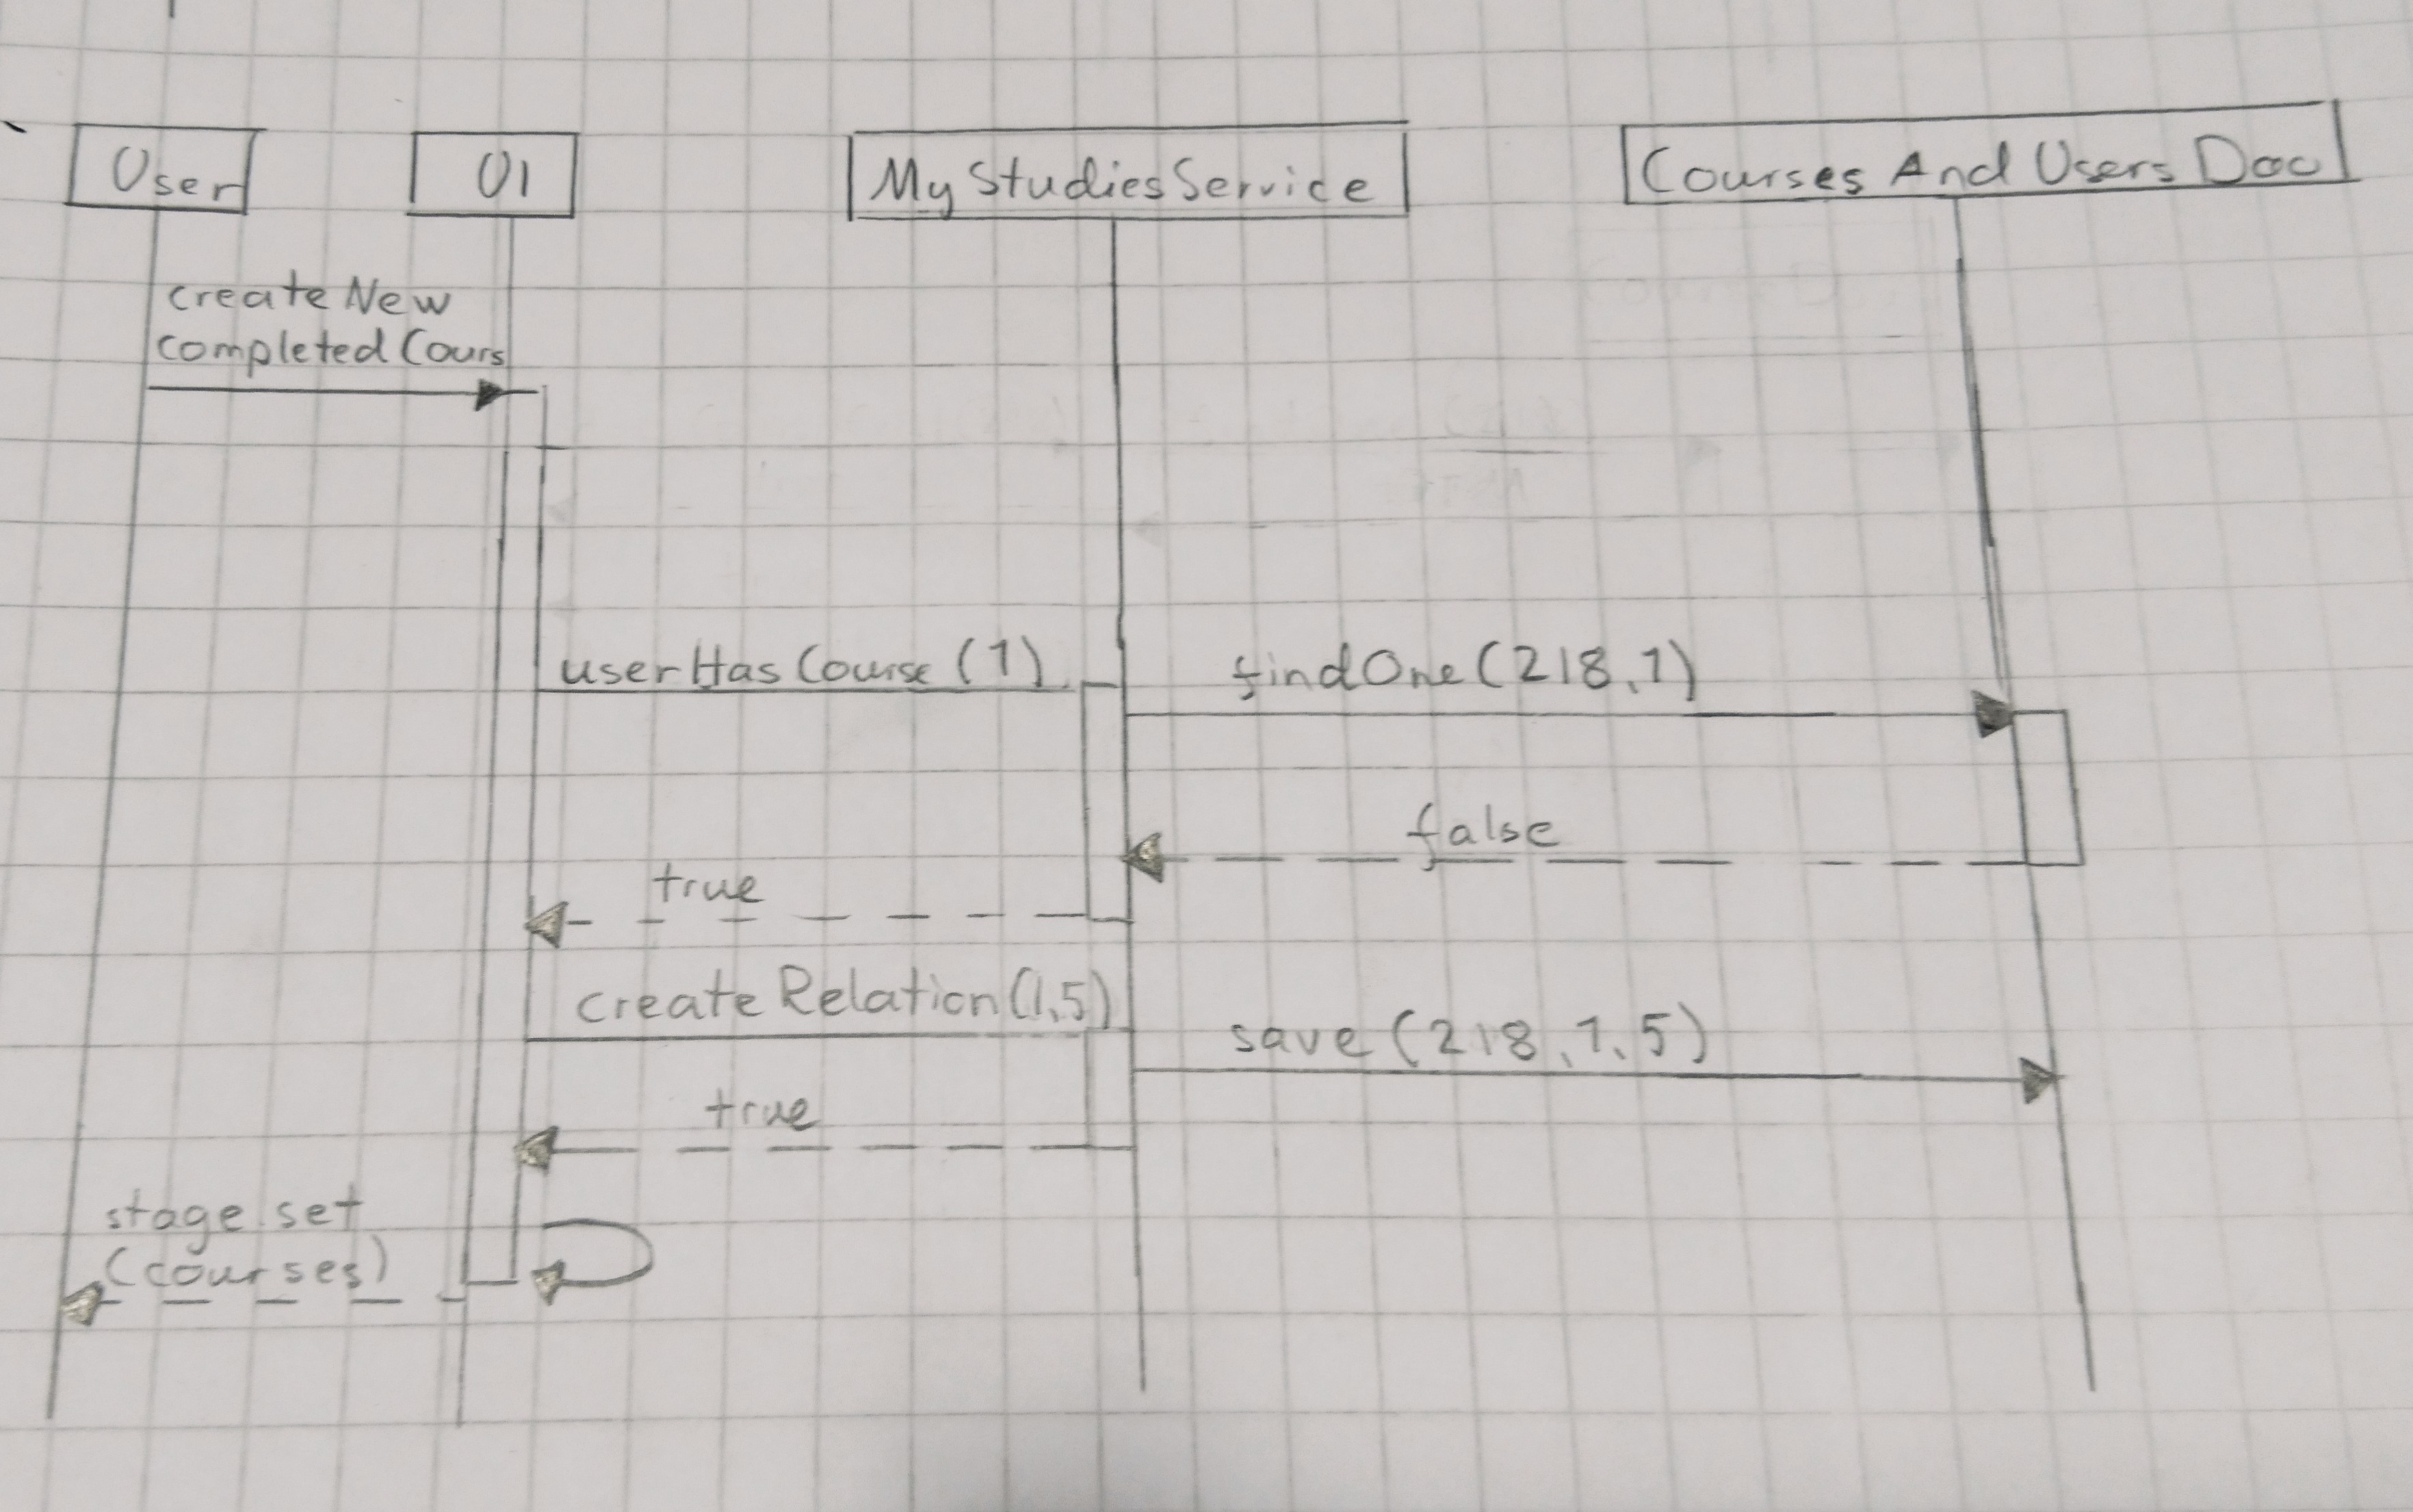 User
UI
MyStudiesService
Courses And Users Dao
create New
completed Cours
userHasCourse (1)
findOne(218,1)
false
true
createRelation(1,5)
save (218,1,5)
true
stage.set
(courses)